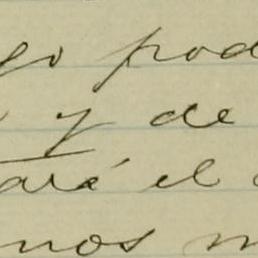 go pod
y de
ará el
nos m